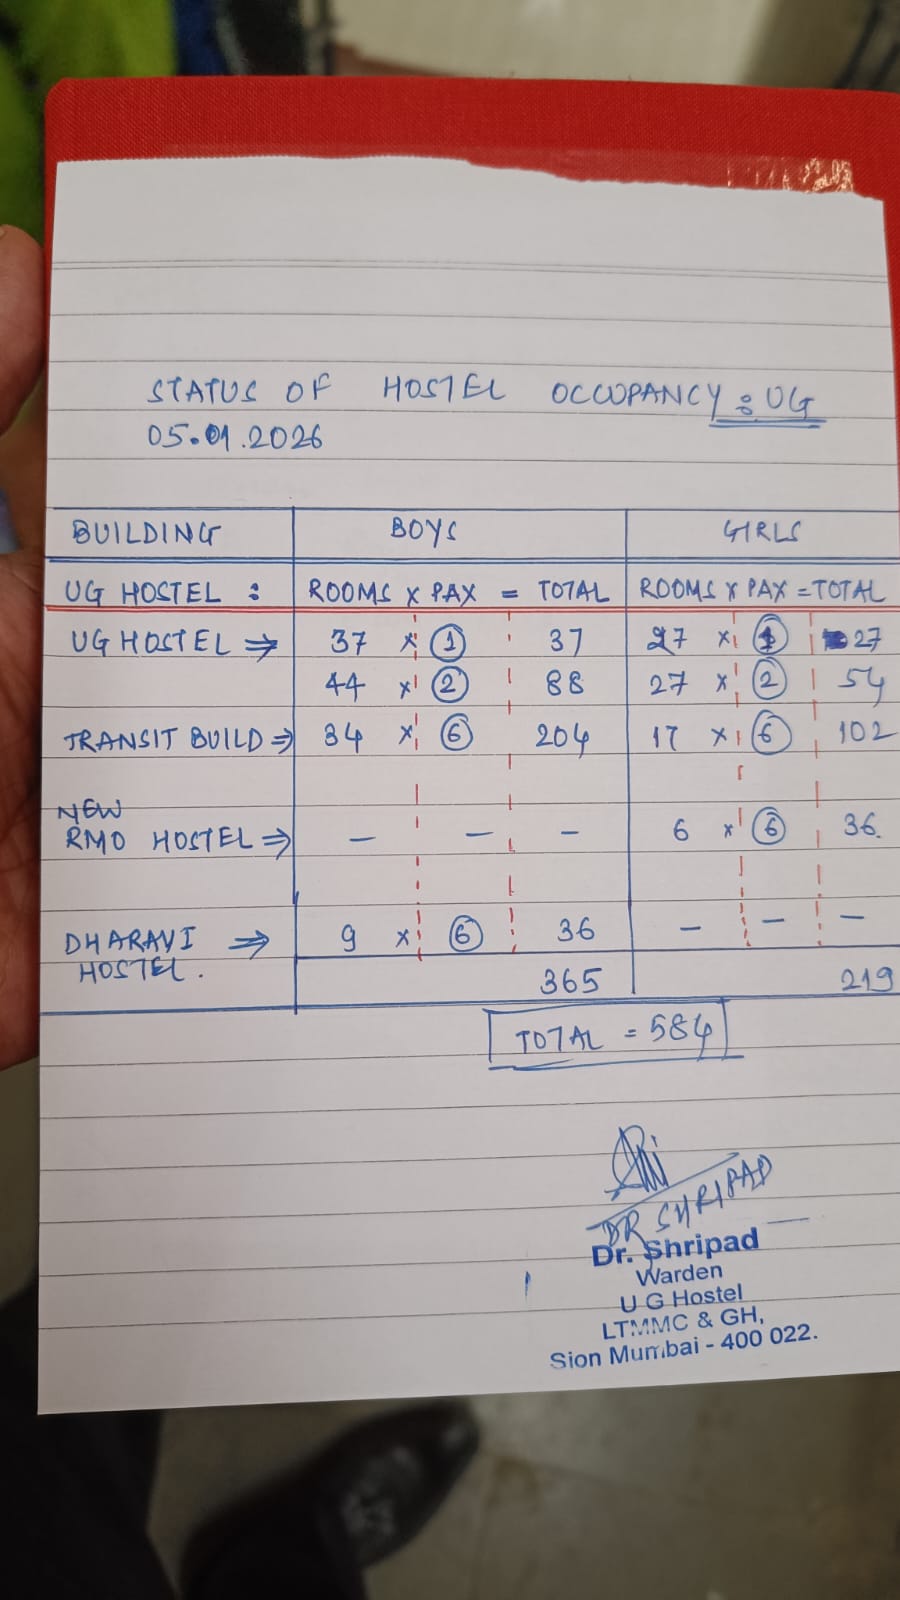 STATUS OF HOSTEL OCCUPANCY : UG
05.01.2026
BUILDING BOYS GIRLS
UG HOSTEL : ROOMS x PAX = TOTAL ROOMS x PAX = TOTAL
UG HOSTEL ⇒ 37 x 1 37 27 x 1 27
44 x 2 88 27 x 2 54
TRANSIT BUILD ⇒ 34 x 6 204 17 x 6 102
NEW
RMO HOSTEL ⇒ — — — 6 x 6 36
DHARAVI ⇒ 9 x 6 36 — — —
HOSTEL.
365 219
TOTAL = 584
DR SHRIPAD
Dr. Shripad
Warden
U G Hostel
LTMMC & GH,
Sion Mumbai - 400 022.